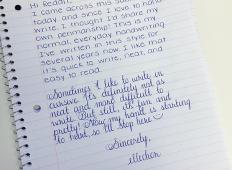 Hi Reddit!
I came across this sub
today and since I love to hand-
write, I thought I'd share my
own penmanship! This is my
normal, everyday handwriting.
I've written in this style for
several years now. I like that
it's quick to write, neat, and
easy to read.
Sometimes I like to write in
cursive. It's definitely not as
neat and more difficult to
write. But still, it's fun and
pretty! Now my hand is starting
to hurt, so I'll stop here
Sincerely,